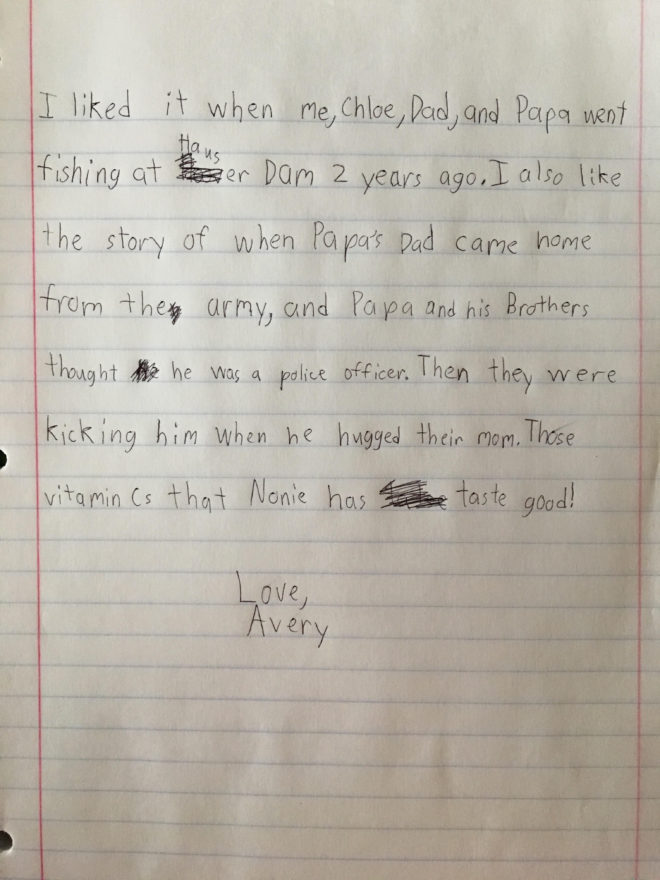 I liked it when me, Chloe, Dad, and Papa went
fishing at Hauser Dam 2 years ago. I also like
the story of when Papa's Dad came home
from the army, and Papa and his Brothers
thought he was a police officer. Then they were
kicking him when he hugged their mom. Those
vitamin Cs that Nonie has taste good!
Love,
Avery